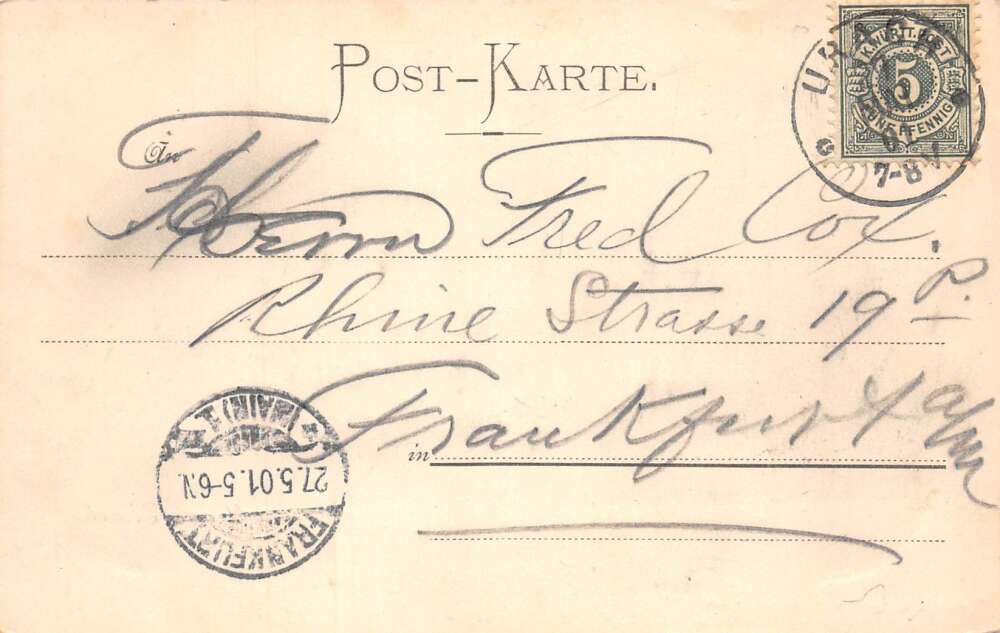 POST-KARTE.
URACH
K.WÜRTT.POST
5
FÜNF PFENNIG
7-8V
An
Herrn Fred Cox,
Rhine Strasse 19 P.
in Frankfurt a/m
FRANKFURT (MAIN) 1
27.5.01.5-6N.